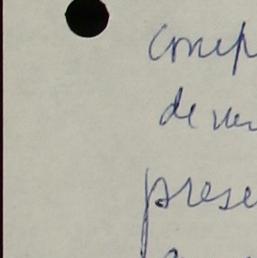 concep
de ver
prese